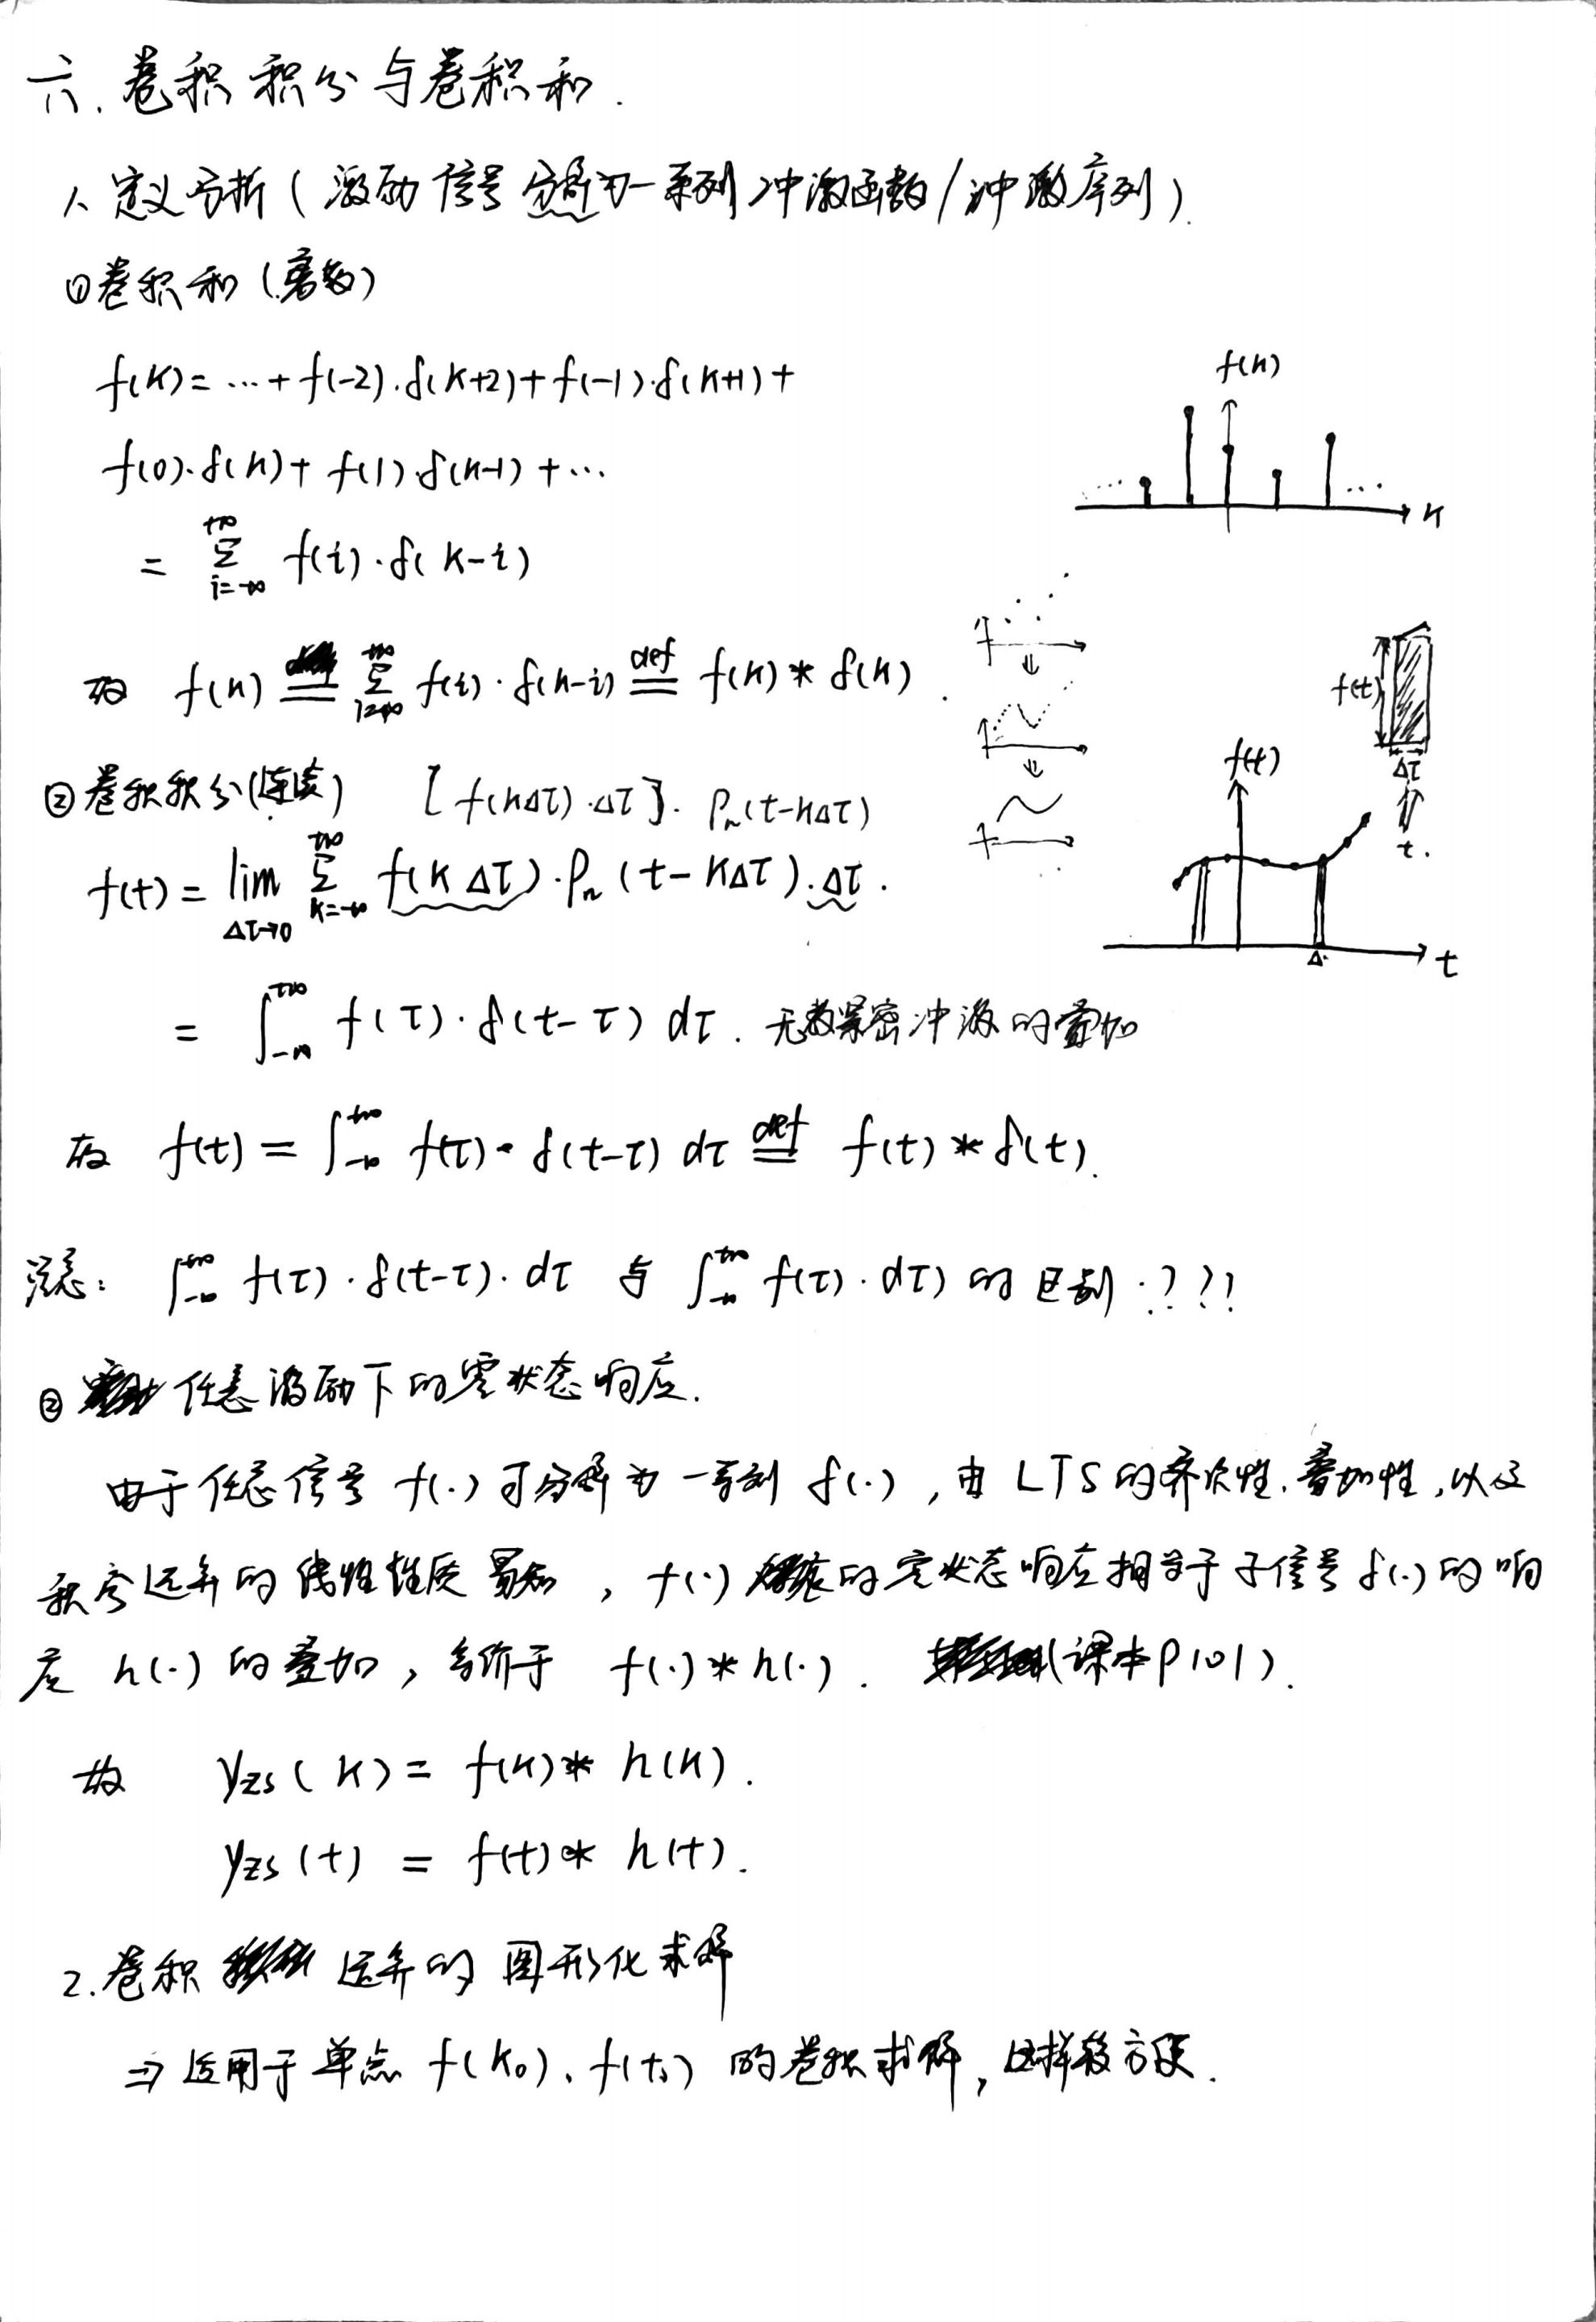 六、卷积积分与卷积和.
1、定义分析(激励信号分解为一系列冲激函数/冲激序列).
①卷积和(离散)
f(k)=…+f(-2)·δ(k+2)+f(-1)·δ(k+1)+
f(0)·δ(k)+f(1)·δ(k-1)+…
f(k)
k
= Σ_{i=-∞}^{+∞} f(i)·δ(k-i)
故 f(k) = Σ_{i=-∞}^{+∞} f(i)·δ(k-i) \overset{def}{=} f(k)*δ(k).
f(t)
Δτ
②卷积积分(连续) [f(kΔτ)·Δτ]·P_n(t-kΔτ)
f(t)
t.
f(t)=lim_{Δτ→0} Σ_{k=-∞}^{+∞} f(kΔτ)·P_n(t-kΔτ)·Δτ.
t
= ∫_{-∞}^{+∞} f(τ)·δ(t-τ)dτ. 无数紧密冲激的叠加
故 f(t)=∫_{-∞}^{+∞} f(τ)·δ(t-τ)dτ \overset{def}{=} f(t)*δ(t).
注意: ∫_{-∞}^{+∞} f(τ)·δ(t-τ)·dτ 与 ∫_{-∞}^{+∞} f(τ)·dτ) 的区别·???
② 任意激励下的零状态响应.
由于任意信号 f(·)可分解为一系列 δ(·),由LTS的齐次性、叠加性,以及
积分运算的线性性质易知,f(·)的零状态响应相当于子信号δ(·)的响
应 h(·)的叠加,等价于 f(·)*h(·). (课本P101).
故 y_{zs}(k)=f(k)*h(k).
y_{zs}(t)=f(t)*h(t).
2.卷积 运算的图形化求解
⇒适用于单点f(k₀)、f(t₀)的卷积求解,这样较方便.